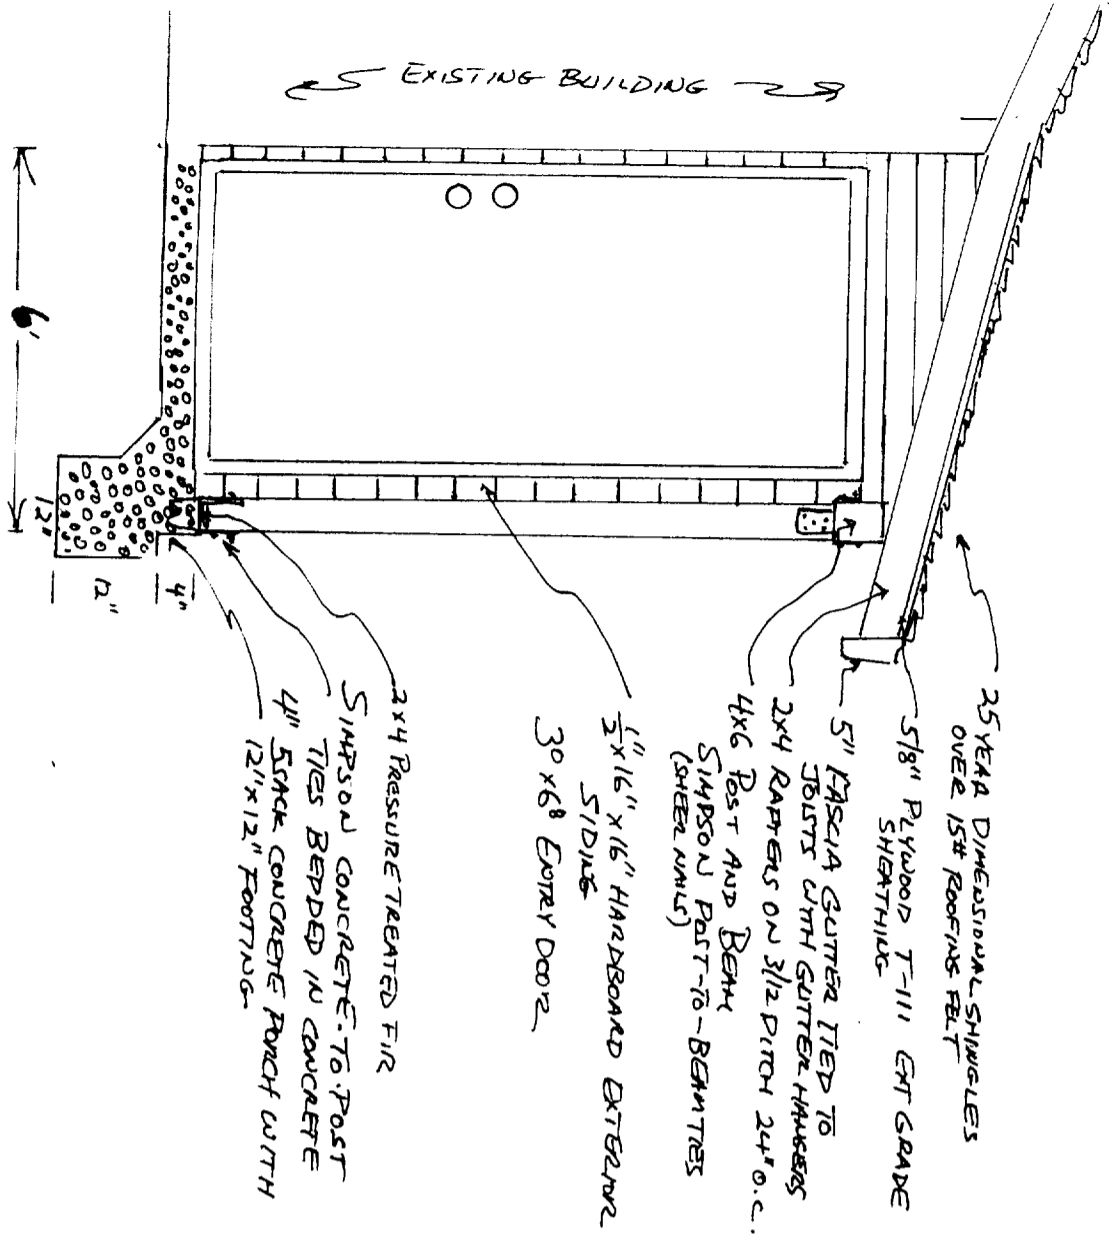 EXISTING BUILDING
25 YEAR DIMENSIONAL SHINGLES
OVER 15# ROOFING FELT
5/8" PLYWOOD T-111 EXT GRADE
SHEATHING
5" FASCIA GUTTER TIED TO
JOISTS WITH GUTTER HANGERS
2x4 RAFTERS ON 3/12 PITCH 24" O.C.
4x6 POST AND BEAM
SIMPSON POST-TO-BEAM TIES
(SHEER NAILS)
1/2" x 16" x 16" HARDBOARD EXTERIOR
SIDING
3⁰ x 6⁸ ENTRY DOOR
2x4 PRESSURE TREATED FIR
SIMPSON CONCRETE-TO-POST
TIES BEDDED IN CONCRETE
4" 5 SACK CONCRETE PORCH WITH
12" x 12" FOOTING
4"
12"
12"
6'